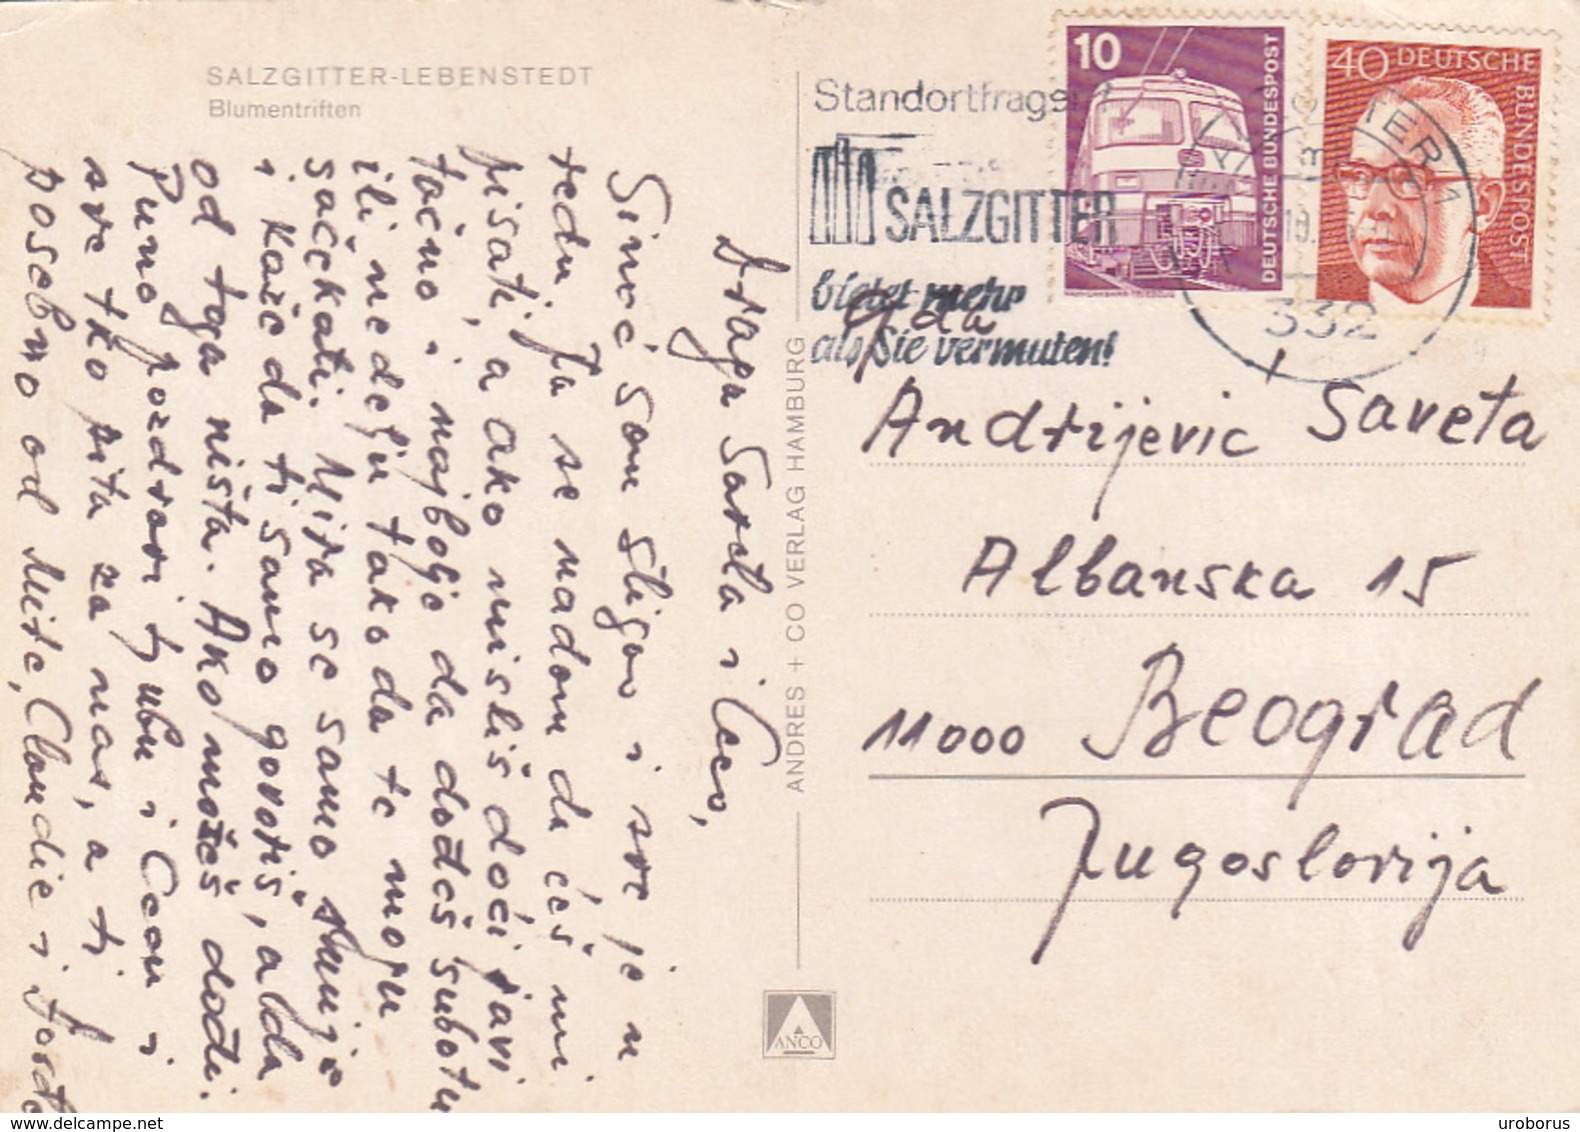 SALZGITTER-LEBENSTEDT
Blumentriften
Draga Saveta i Ceco,
Sinoć sam stigao i sve je u
redu. Ja se nadam da ćeš mi
pisati, a ako misliš doći javi
tačno i najbolje da dođeš subotu
ili nedelju tako da te mogu
sačekati. Mira se samo smije
i kaže da ti samo govoriš, a
od toga ništa. Ako možeš dođi.
Puno pozdravi ljubi i Ceca i
sve tko pita za nas, a ti
posebno od Mire, Claudie i
ANDRES + CO VERLAG HAMBURG
ANCO
Standortfragen?
SALZGITTER
bietet mehr
als Sie vermuten!
10
DEUTSCHE BUNDESPOST
40 DEUTSCHE
BUNDESPOST
332
Andrijevic Saveta
Albanska 15
11000 Beograd
Jugoslovija
uroborus
delcampe.net